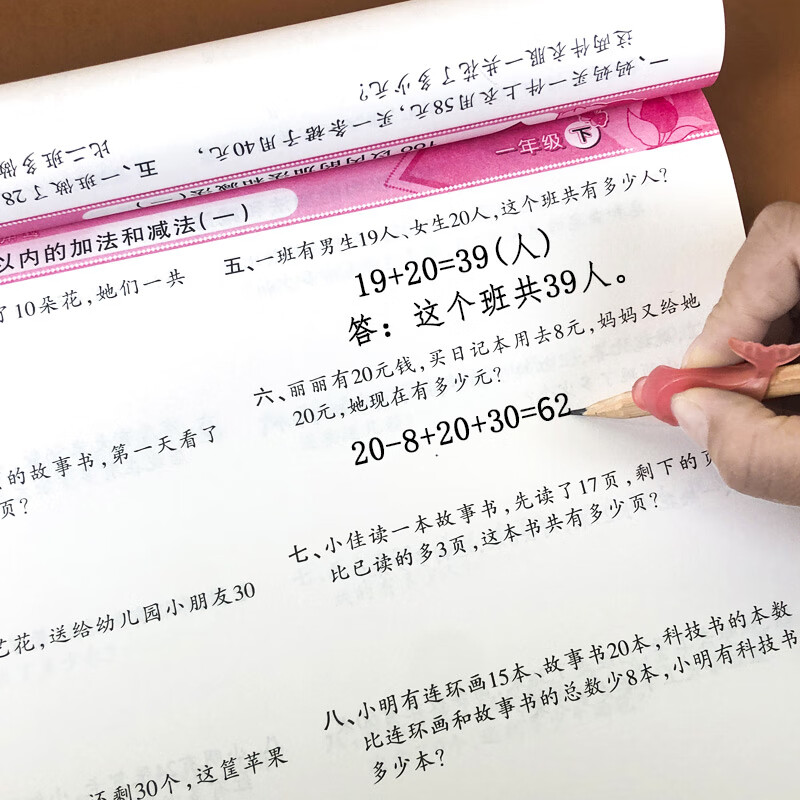 一、妈妈买一件上衣用58元，买一条裙子用40元，
这两件衣服一共花了多少元？
五、一班做了28
比二班多做
100以内的加法和减法(一)
一年级 下
以内的加法和减法(一)
了10朵花，她们一共
的故事书，第一天看了
页？
艺花，送给幼儿园小朋友30
还剩30个，这筐苹果
五、一班有男生19人、女生20人，这个班共有多少人？
19+20=39(人)
答：这个班共39人。
六、丽丽有20元钱，买日记本用去8元，妈妈又给她
20元，她现在有多少元？
20-8+20+30=62
七、小佳读一本故事书，先读了17页，剩下的页
比已读的多3页，这本书共有多少页？
八、小明有连环画15本、故事书20本，科技书的本数
比连环画和故事书的总数少8本，小明有科技书
多少本？